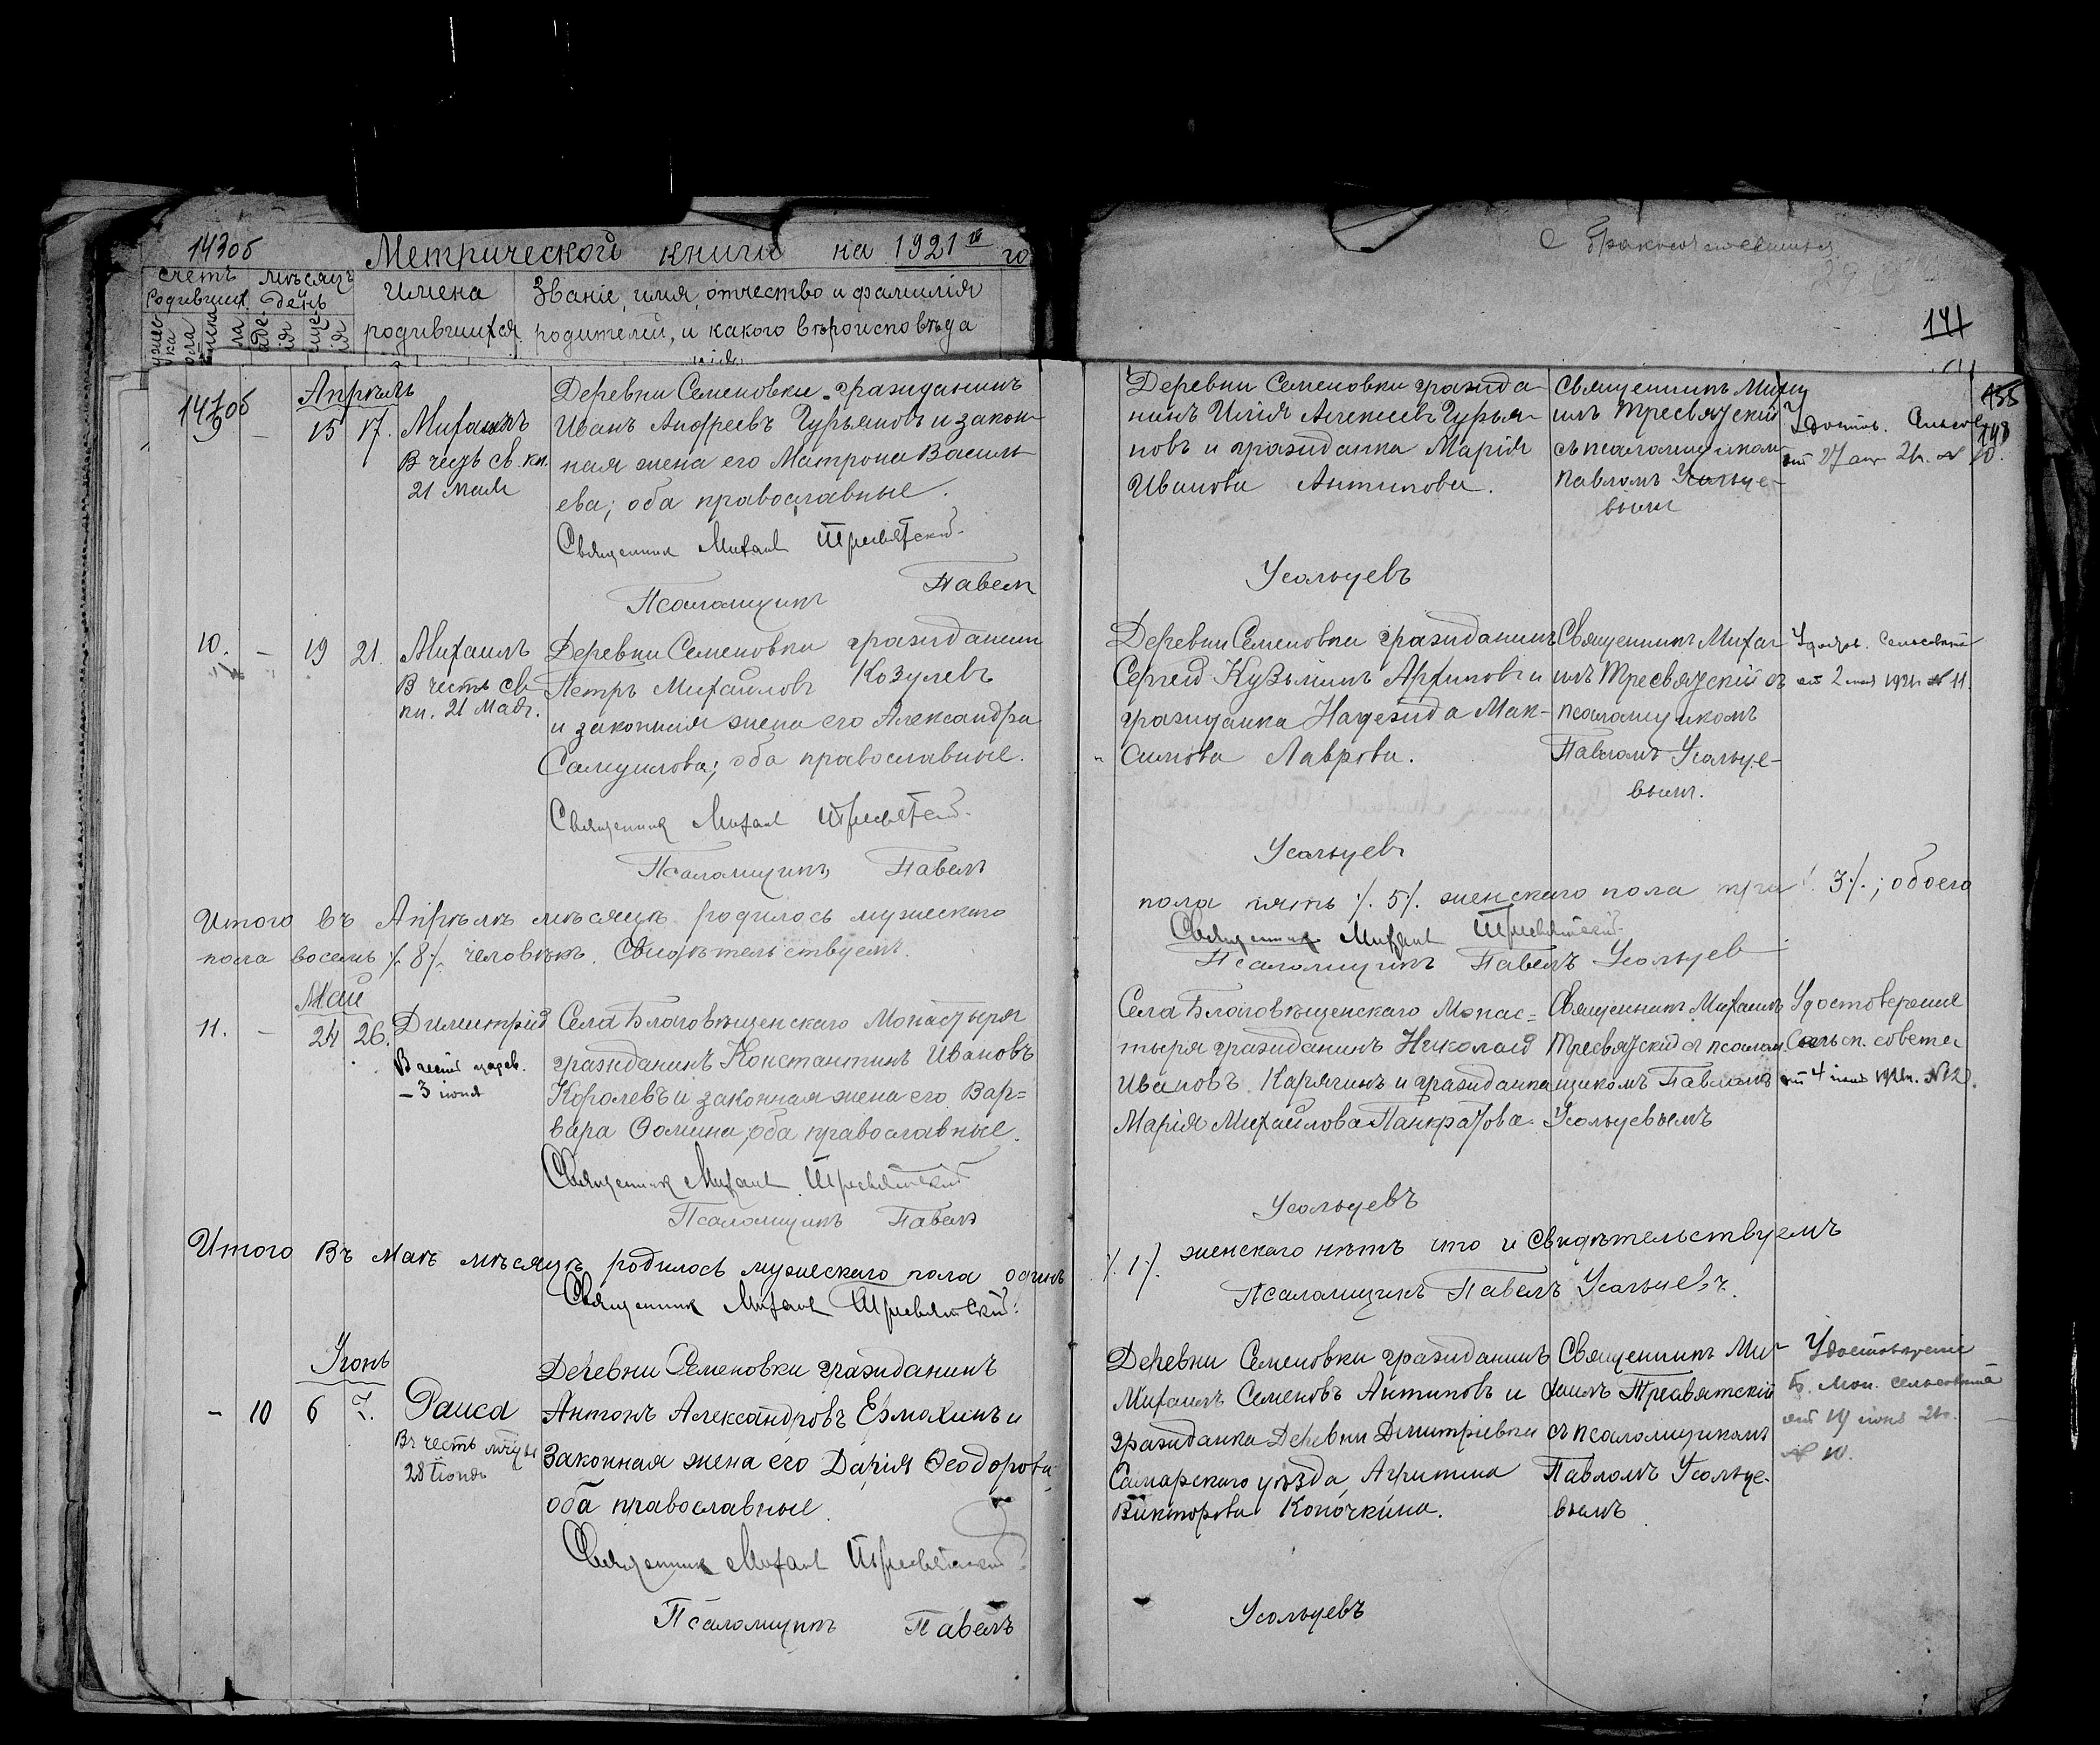 143об
Метрической книги на 1921 го
счетъ родившихся
мѣсяцъ и день
Имена родившихся
Званіе, имя, отчество и фамилія
родителей, и какого вѣроисповѣда
нія
141
147об
Апрѣль
9 – 15 17. Михаилъ
В честь св. кн.
21 мая
Деревни Семеновки гражданинъ
Иванъ Андреевъ Гурьяновъ и закон-
ная жена его Матрона Василь-
ева; оба православные.
Священник Михаил Тресвятский.
Псаломщикъ Павелъ
Деревни Семеновки гражда-
нинъ Илія Алексеевъ Гурья-
новъ и гражданка Марія
Иванова Антипова.
Усольцевъ
Священникъ Миха
илъ Тресвятскій
съ псаломщикомъ
Павломъ Усольце-
вымъ
Удостов. Сельсов.
от 27 апр 21г. № 10.
148
10. – 19 21. Михаилъ
В честь св.
кн. 21 мая.
Деревни Семеновки гражданин
Петръ Михайловъ Козулевъ
и законная жена его Александра
Самуилова; оба православные.
Священник Михаил Тресвятский.
Псаломщикъ Павелъ
Деревни Семеновки гражданинъ
Сергей Кузьминъ Архиповъ и
гражданка Надежда Мак-
симова Лаврова.
Усольцевъ
Священникъ Миха
илъ Тресвятский съ
псаломщикомъ
Павломъ Усольце-
вымъ.
Удостов. Сельсовета
от 2 мая 1921г. № 11.
Итого въ Апрѣлѣ мѣсяцѣ родилось мужескаго
пола пять /. 5/. женскаго пола три /. 3/.; обоего
пола восемь /. 8/. человѣкъ. Свидѣтельствуемъ.
Священник Михаил Тресвятский
Псаломщикъ Павелъ Усольцев
Май
11. – 24 26. Димитрій
В честь царев.
– 3 июня
Села Благовѣщенскаго Монастыря
гражданинъ Константинъ Ивановъ
Королевъ и законная жена его Вар=
вара Ѳомина, оба православные.
Священник Михаил Тресвятский
Псаломщикъ Павелъ
Села Благовѣщенскаго Монас=
тыря гражданинъ Николай
Ивановъ Карягинъ и гражданка
Марія Михайлова Панкратова.
Усольцевъ
Священникъ Михаилъ
Тресвятский съ псалом-
щикомъ Павломъ
Усольцевымъ
Удостоверение
Сельск. совета
от 4 июня 1921г. № 12.
Итого въ маѣ мѣсяцѣ родилось мужескаго пола одинъ
/. 1/. женскаго нѣтъ что и свидѣтельствуемъ
Священник Михаил Тресвятский.
Псаломщикъ Павелъ Усольцевъ.
Іюнь
– 10 6 7. Раиса
Въ честь мчцы
23 Іюня
Деревни Семеновки гражданинъ
Антонъ Александровъ Ермохинъ и
Законная жена его Дарія Ѳеодорова
оба православные.
Священник Михаил Тресвятский
Псаломщикъ Павелъ
Деревни Семеновки гражданинъ
Михаилъ Семеновъ Антиповъ и
гражданка Деревни Дмитріевки
Самарскаго уѣзда, Агрипина
Викторова Копочкина.
Усольцевъ
Священникъ Ми-
хаилъ Тресвятскій
съ псаломщикомъ
Павломъ Усольце-
вымъ
Удостоверение
Б. Мон. сельсовета
от 19 июня 21г.
№ 10.